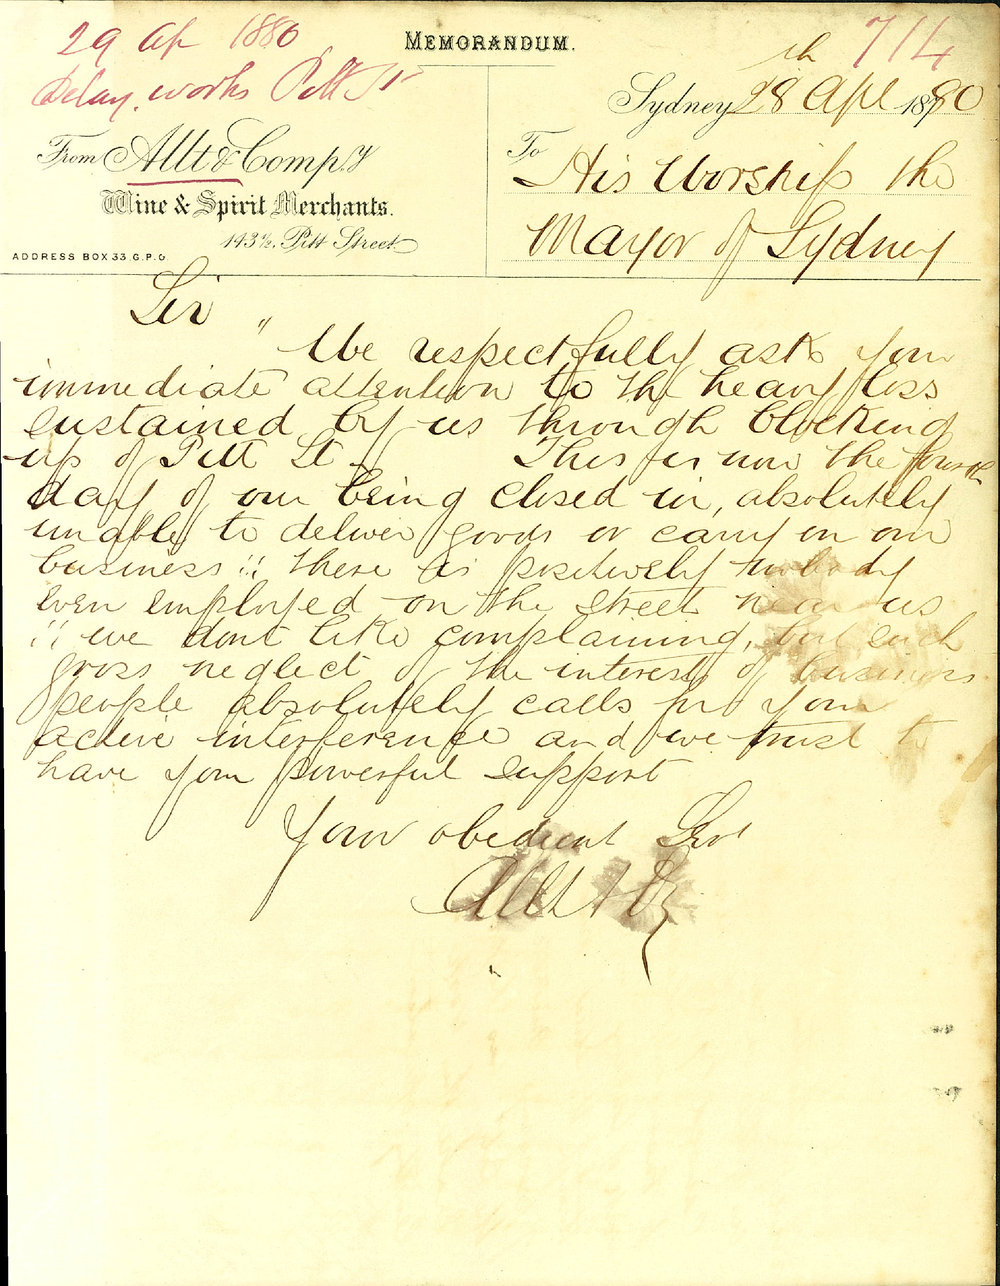 29 Ap 1880
Delay. works Pitt St
714
MEMORANDUM.
Sydney 28th Apl 1880
From Allt & Comp.y
Wine & Spirit Merchants.
143½ Pitt Street
ADDRESS BOX 33 G.P.O.
To His Worship the
Mayor of Sydney
Sir
" We respectfully ask your
immediate attention to the heavy loss
sustained by us through blocking
up of Pitt St. This is now the fourth
day of our being closed in, absolutely
unable to deliver goods or carry on our
business !! there is positively nobody
even employed on the street near us
!! we dont like complaining, but such
gross neglect of the interests of business
people absolutely calls for your
active interference and we trust to
have your powerful support
Your obedient Svt
Allt & Cy